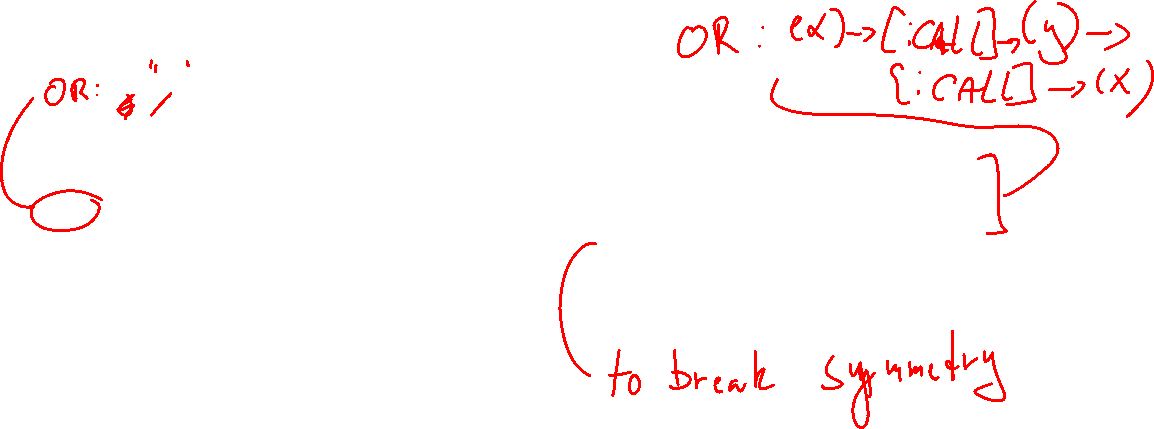 OR: (x)->[:CALL]->(y)->
[:CALL]->(x)
OR: "
to break symmetry